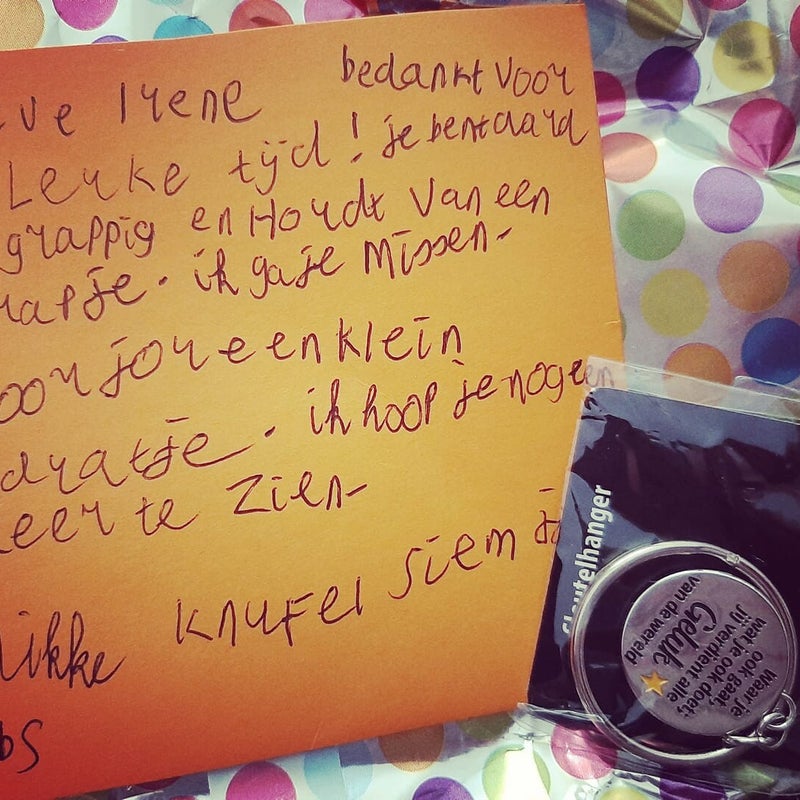 ve Irene bedankt voor
Leuke tijd! je bent aard
grappig en Houdt van een
rapje. ik ga je missen.
oor jou een klein
dratje. ik hoop je nog een
keer te zien.
knuffel siem
ikke
bs
Sleutelhanger
Waar je
ook gaat,
wat je ook doet;
jij verdient alle
Geluk
van de wereld